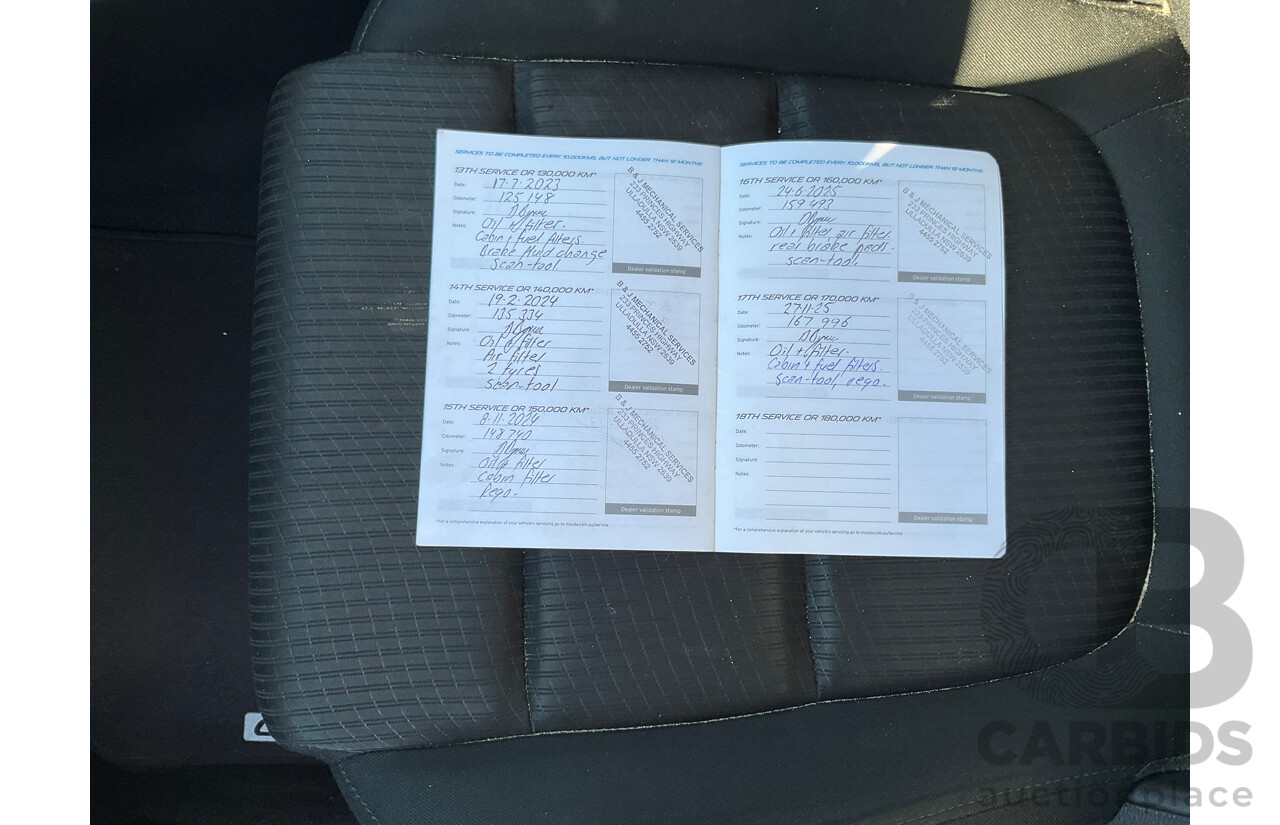 SERVICES TO BE COMPLETED EVERY 10,000KMS, BUT NOT LONGER THAN 12 MONTHS
13TH SERVICE OR 130,000 KM*
Date: 17-7-2023
Odometer: 125 148
Signature:
Notes: Oil + filter.
Cabin + fuel filters.
Brake fluid change
Scan-tool.
B & J MECHANICAL SERVICES
233 PRINCES HIGHWAY
ULLADULLA NSW 2539
4455 2752
Dealer validation stamp
14TH SERVICE OR 140,000 KM*
Date: 19-2-2024
Odometer: 135 334
Signature:
Notes: Oil + filter
Air filter
2 tyres
scan-tool
B & J MECHANICAL SERVICES
233 PRINCES HIGHWAY
ULLADULLA NSW 2539
4455 2752
Dealer validation stamp
15TH SERVICE OR 150,000 KM*
Date: 8-11-2024
Odometer: 148 740
Signature:
Notes: Oil + filter
Cabin filter
Rego.
B & J MECHANICAL SERVICES
233 PRINCES HIGHWAY
ULLADULLA NSW 2539
4455 2752
Dealer validation stamp
*For a comprehensive explanation of your vehicle's servicing go to mazda.com.au/service
SERVICES TO BE COMPLETED EVERY 10,000KMS, BUT NOT LONGER THAN 12 MONTHS
16TH SERVICE OR 160,000 KM*
Date: 24-6-2025
Odometer: 159 493
Signature:
Notes: Oil + filter, air filter
rear brake pads.
scan-tool.
B & J MECHANICAL SERVICES
233 PRINCES HIGHWAY
ULLADULLA NSW 2539
4455 2752
Dealer validation stamp
17TH SERVICE OR 170,000 KM*
Date: 27-11-25
Odometer: 167 996
Signature:
Notes: Oil + filter.
Cabin + fuel filters.
scan-tool, rego.
B & J MECHANICAL SERVICES
233 PRINCES HIGHWAY
ULLADULLA NSW 2539
4455 2752
Dealer validation stamp
18TH SERVICE OR 180,000 KM*
Date:
Odometer:
Signature:
Notes:
Dealer validation stamp
*For a comprehensive explanation of your vehicle's servicing go to mazda.com.au/service
CB
CARBIDS
auctionplace